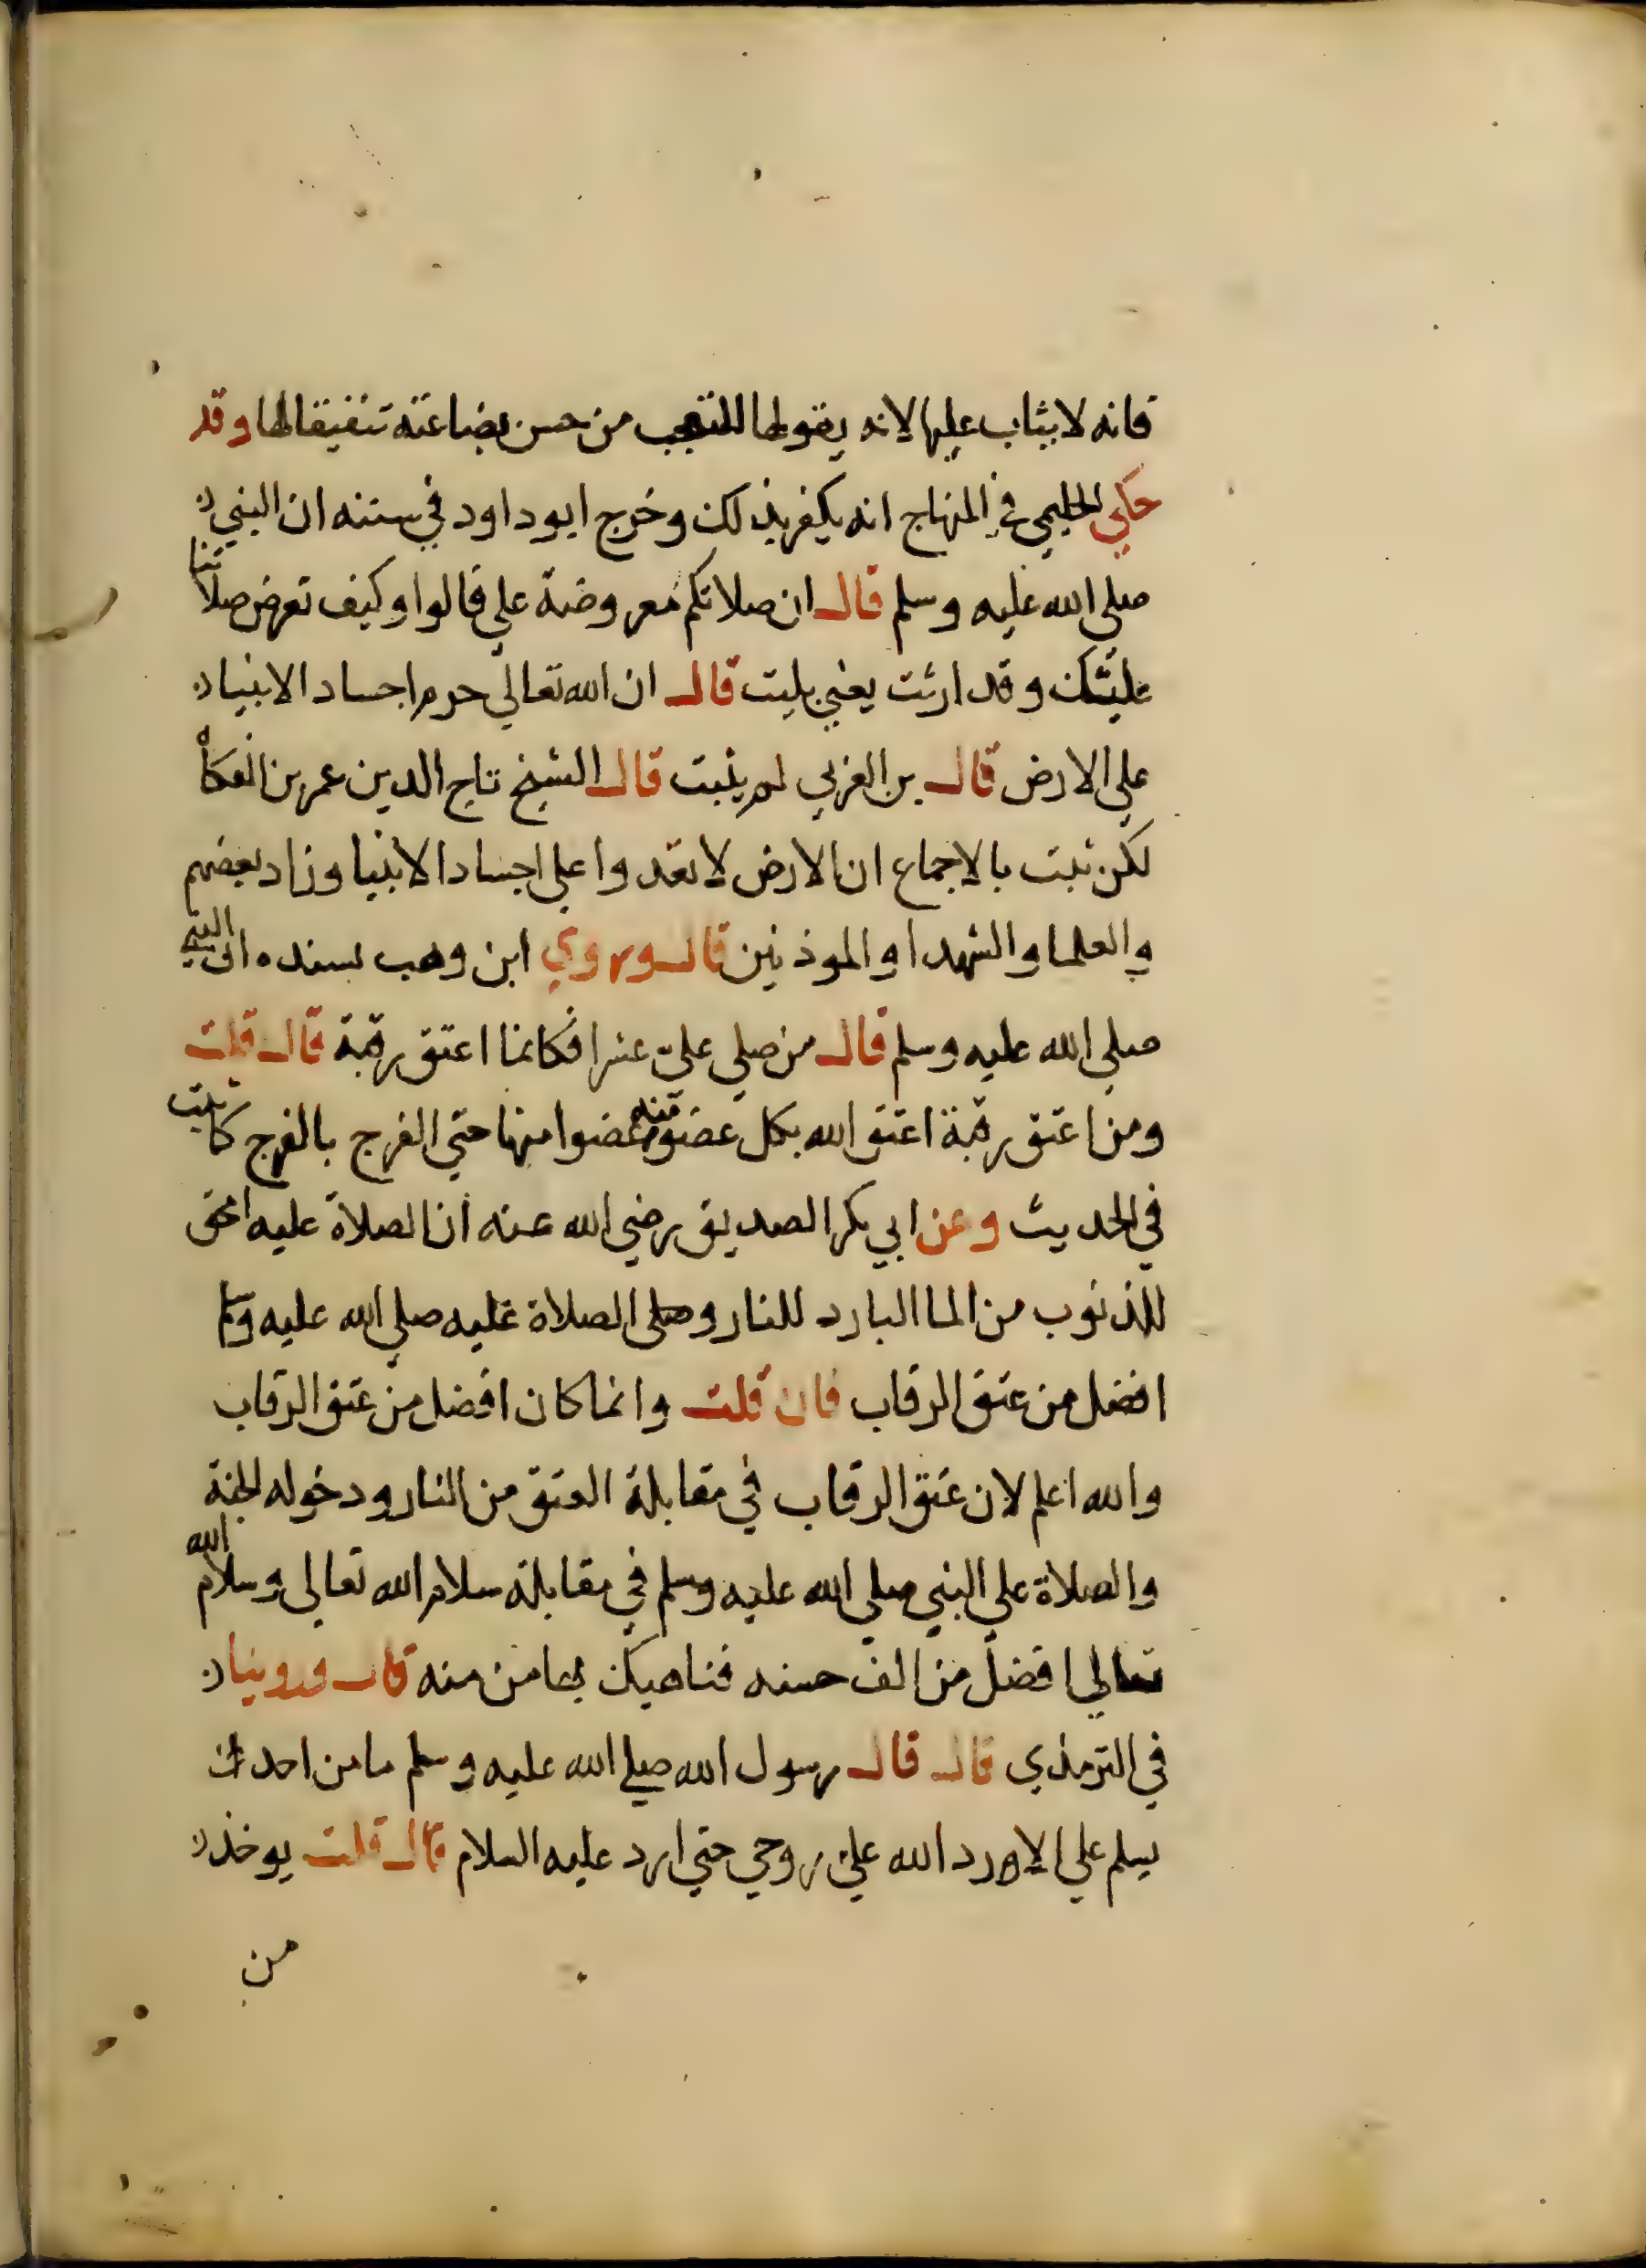 فانه لا يثاب عليها لانه يقولها للتعجب من حسن بضاعته تنفيقا لها وقد
حكي الحليمي في المنهاج انه يكفر بذلك وخرج ابو داود في سننه ان النبي
صلي الله عليه وسلم قال ان صلاتكم معروضة علي قالوا وكيف تعرض صلاتنا
عليك وقد ارئت يعني بليت قال ان الله تعالي حرم اجساد الانبيا
علي الارض قال بن العربي لم يثبت قال الشيخ تاج الدين عمر بن الفكاه
لكن ثبت بالاجماع ان الارض لا تعدوا علي اجساد الانبيا وزاد بعضهم
والعلما والشهدا والموذنين قال وروي ابن وهب بسنده ان النبي
صلي الله عليه وسلم قال من صلي علي عشرا فكانما اعتق رقبة قال قلت
ومن اعتق رقبة اعتق الله بكل عضو منه عضوا منها حتي الفرج بالفرج كا ثبت
في الحديث وعن ابي بكر الصديق رضي الله عنه ان الصلاة عليه امحق
للذنوب من الما البارد للنار وصلي الصلاة عليه صلي الله عليه وسلم
افضل من عتق الرقاب فان قلت وانما كان افضل من عتق الرقاب
والله اعلم لان عتق الرقاب في مقابلة العتق من النار ودخوله الجنة
والصلاة علي النبي صلي الله عليه وسلم في مقابلة سلام الله تعالي وسلام الله
تعالي افضل من الف حسنه فناهيك بها من منه قال وروينا
في الترمذي قال قال رسول الله صلي الله عليه وسلم ما من احد
يسلم علي الا ورد الله علي روحي حتي ارد عليه السلام قال قلت يوخذ
من